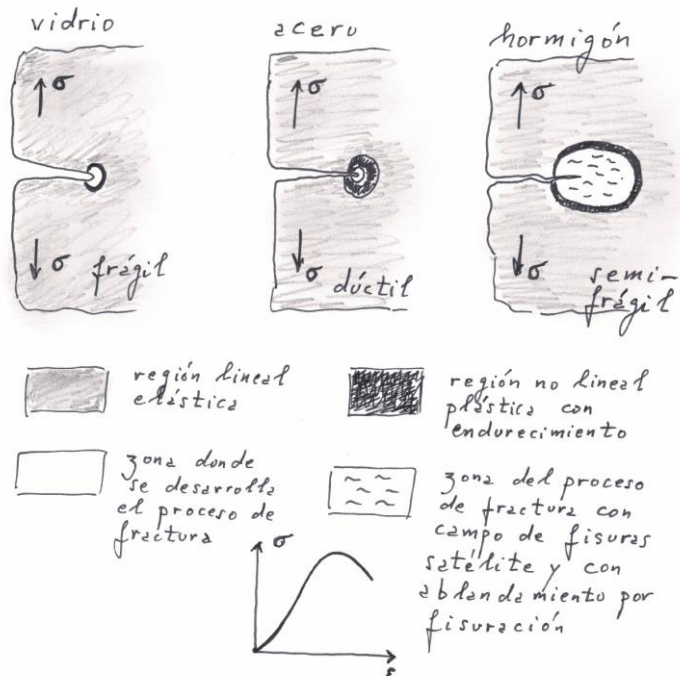 vidrio
σ
σ
frágil
acero
σ
σ
dúctil
hormigón
σ
σ
semi-
frágil
región lineal
elástica
región no lineal
plástica con
endurecimiento
zona donde
se desarrolla
el proceso de
fractura
zona del proceso
de fractura con
campo de fisuras
satélite y con
ablandamiento por
fisuración
σ
ε